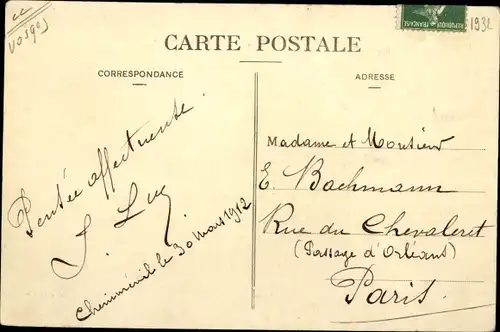 cc
Vosges
1931
CARTE POSTALE
CORRESPONDANCE
Pensée affectueuse.
Cheniménil le 30 Mars 1912
ADRESSE
Madame et Monsieur
E. Bachmann
Rue du Chevaleret
(Passage d'Orléans)
Paris.